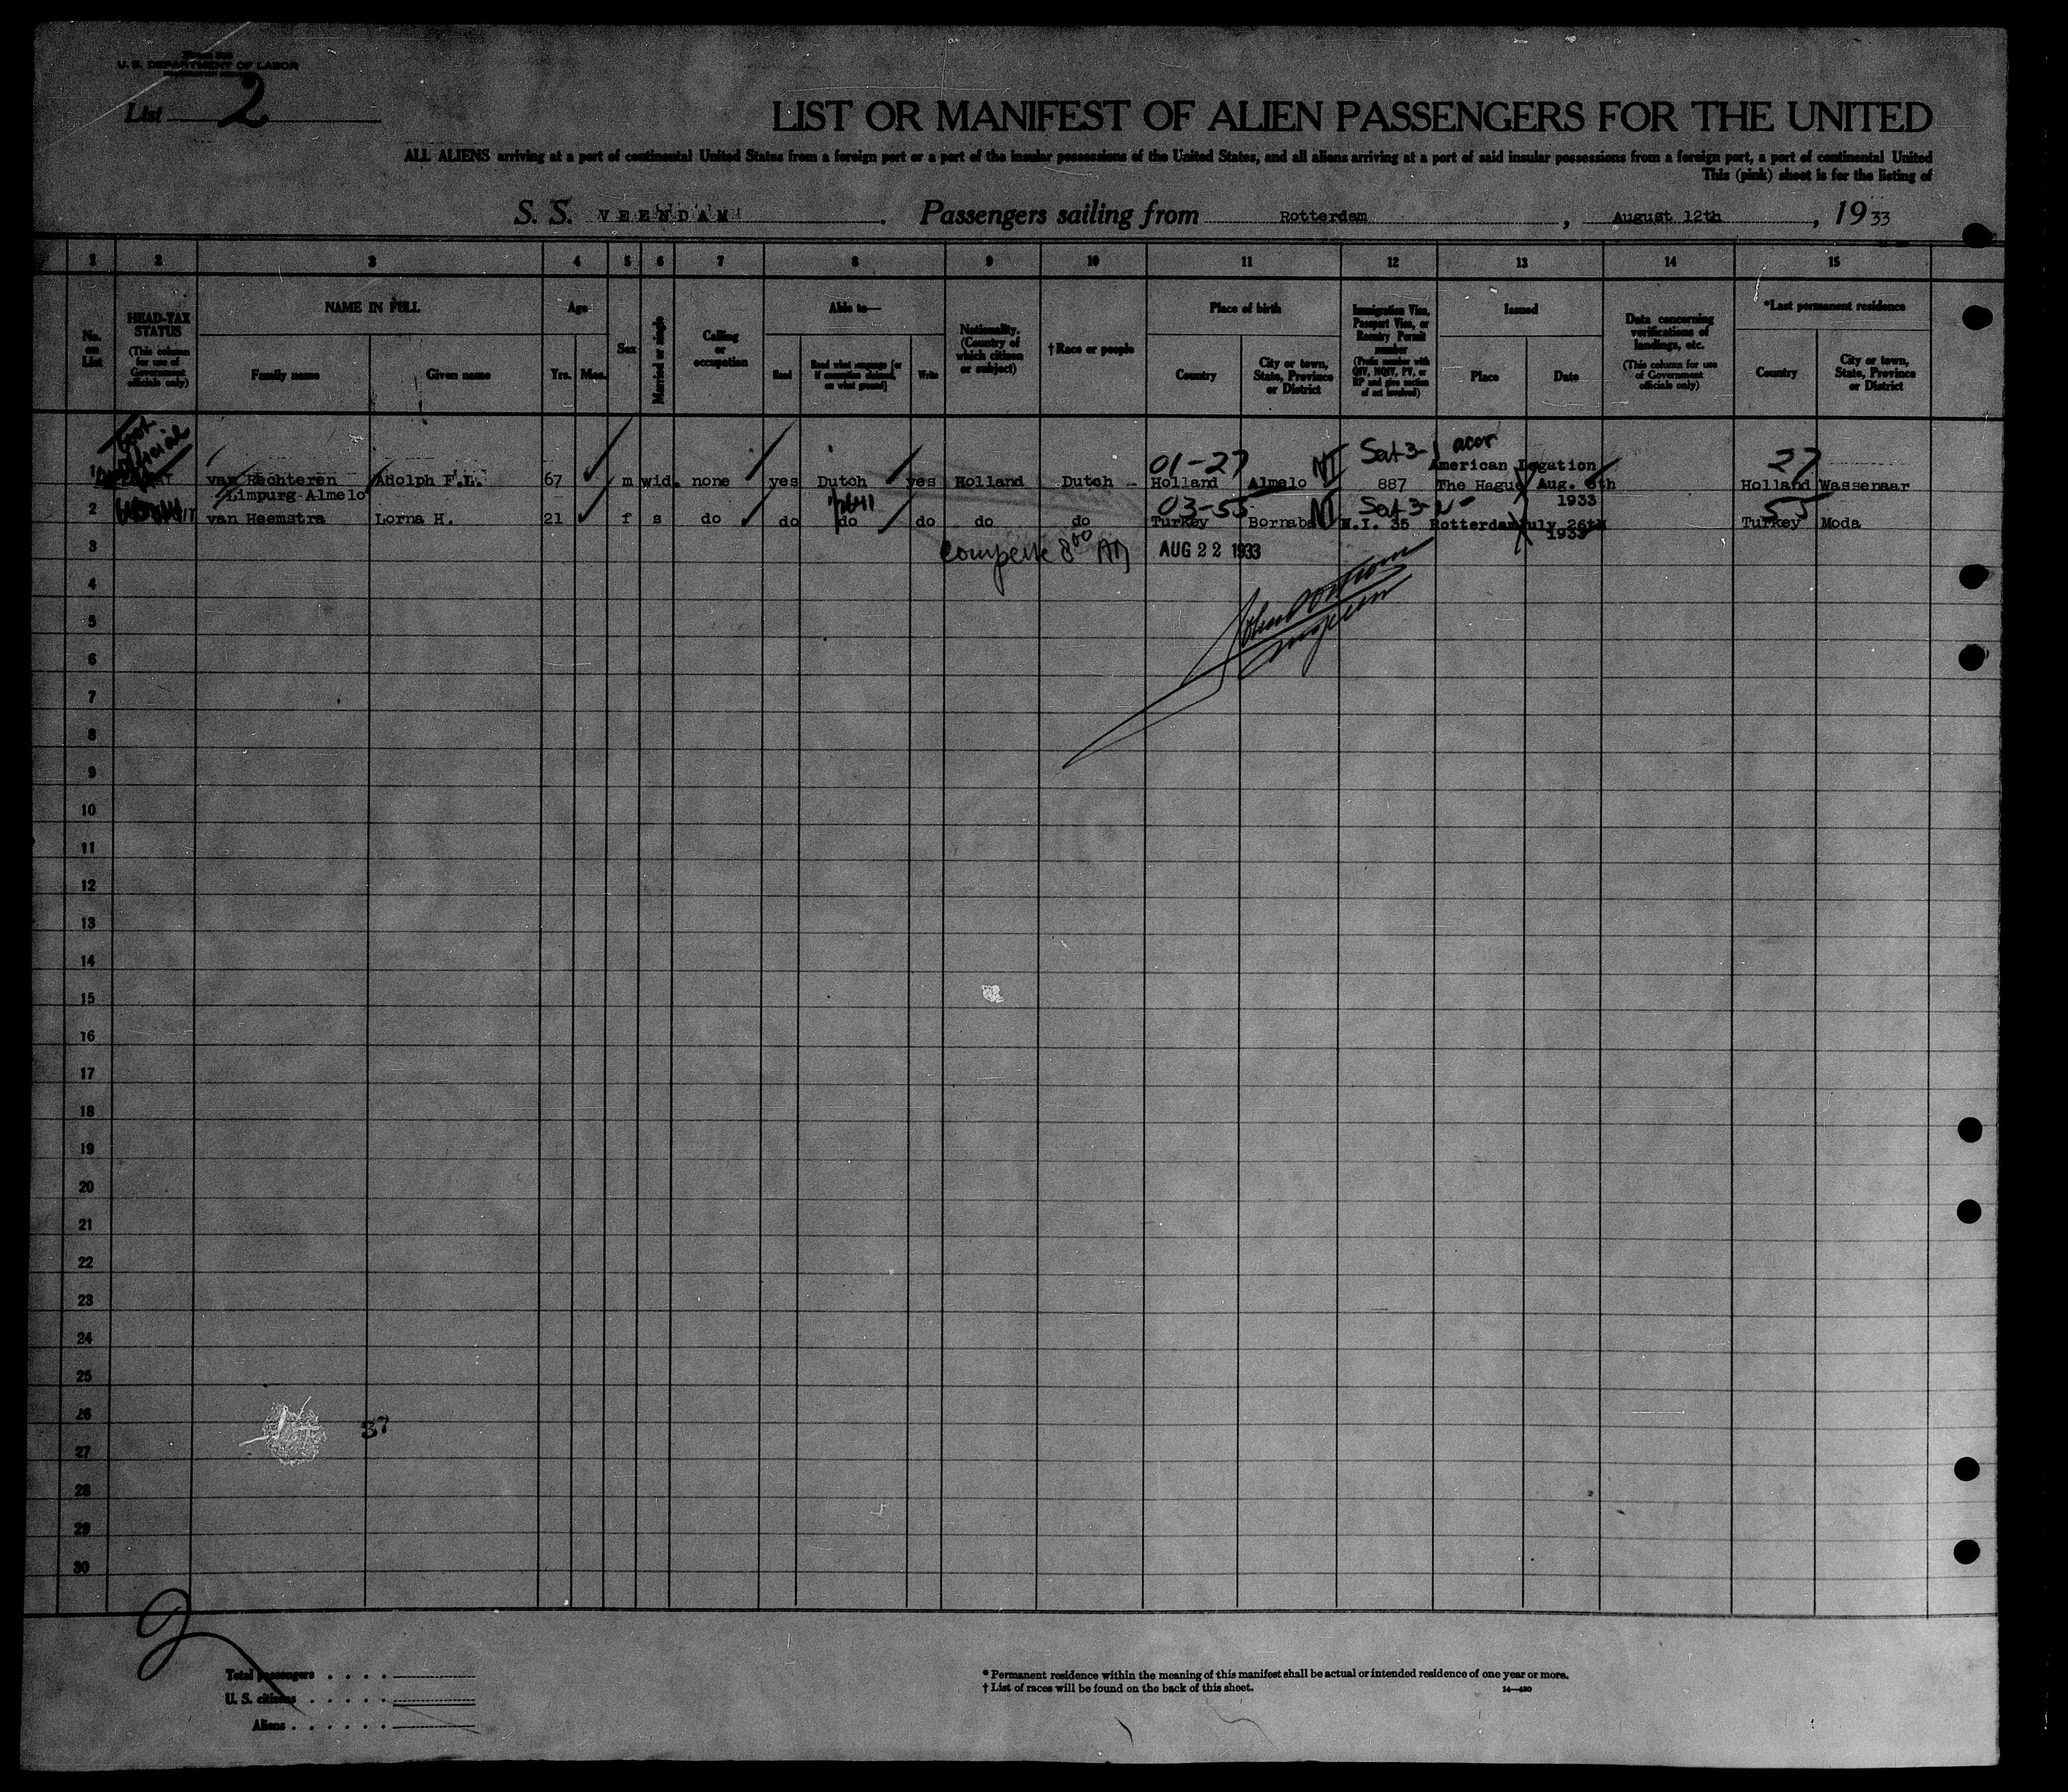 U. S. DEPARTMENT OF LABOR
List 2
LIST OR MANIFEST OF ALIEN PASSENGERS FOR THE UNITED
ALL ALIENS arriving at a port of continental United States from a foreign port or a port of the insular possessions of the United States, and all aliens arriving at a port of said insular possessions from a foreign port, a port of continental United
This (pink) sheet is for the listing of
S. S. VEENDAM. Passengers sailing from Rotterdam, August 12th, 1933
1 2 3 4 5 6 7 8 9 10 11 12 13 14 15
No. on List
HEAD-TAX STATUS (This column for use of Government officials only)
NAME IN FULL
Family name
Given name
Age
Yrs. Mos.
Sex
Married or single
Calling or occupation
Able to—
Read
Read what language [or if exemption claimed, on what ground]
Write
Nationality. (Country of which citizen or subject)
† Race or people
Place of birth
Country
City or town, State, Province or District
Immigration Visa, Passport Visa, or Reentry Permit number (Prefix number with QIV, NQIV, PV, or RP and give section of act involved)
Issued
Place
Date
Data concerning verifications of landings, etc. (This column for use of Government officials only)
*Last permanent residence
Country
City or town, State, Province or District
01-27 NI Sect 3-1 27
American Legation
1 van Rechteren Adolph F.L. 67 m wid. none yes Dutch yes Holland Dutch Holland Almelo 887 The Hague Aug. 8th Holland Wassenaar
Limpurg Almelo 1933
03-55 NI Sect 3-2 55
2 van Heemstra Lorna H. 21 f s do do do do do do Turkey Bornaba N.I. 35 Rotterdam July 26th Turkey Moda
1933
3 8 00 AM AUG 22 1933
4
5
6
7
8
9
10
11
12
13
14
15
16
17
18
19
20
21
22
23
24
25
26
37
27
28
29
30
2
Total passengers
U. S. citizens
Aliens
* Permanent residence within the meaning of this manifest shall be actual or intended residence of one year or more.
† List of races will be found on the back of this sheet.
14—430